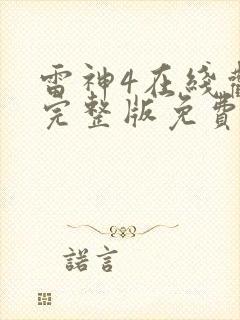 雷神4在线
完整版免費
諾言